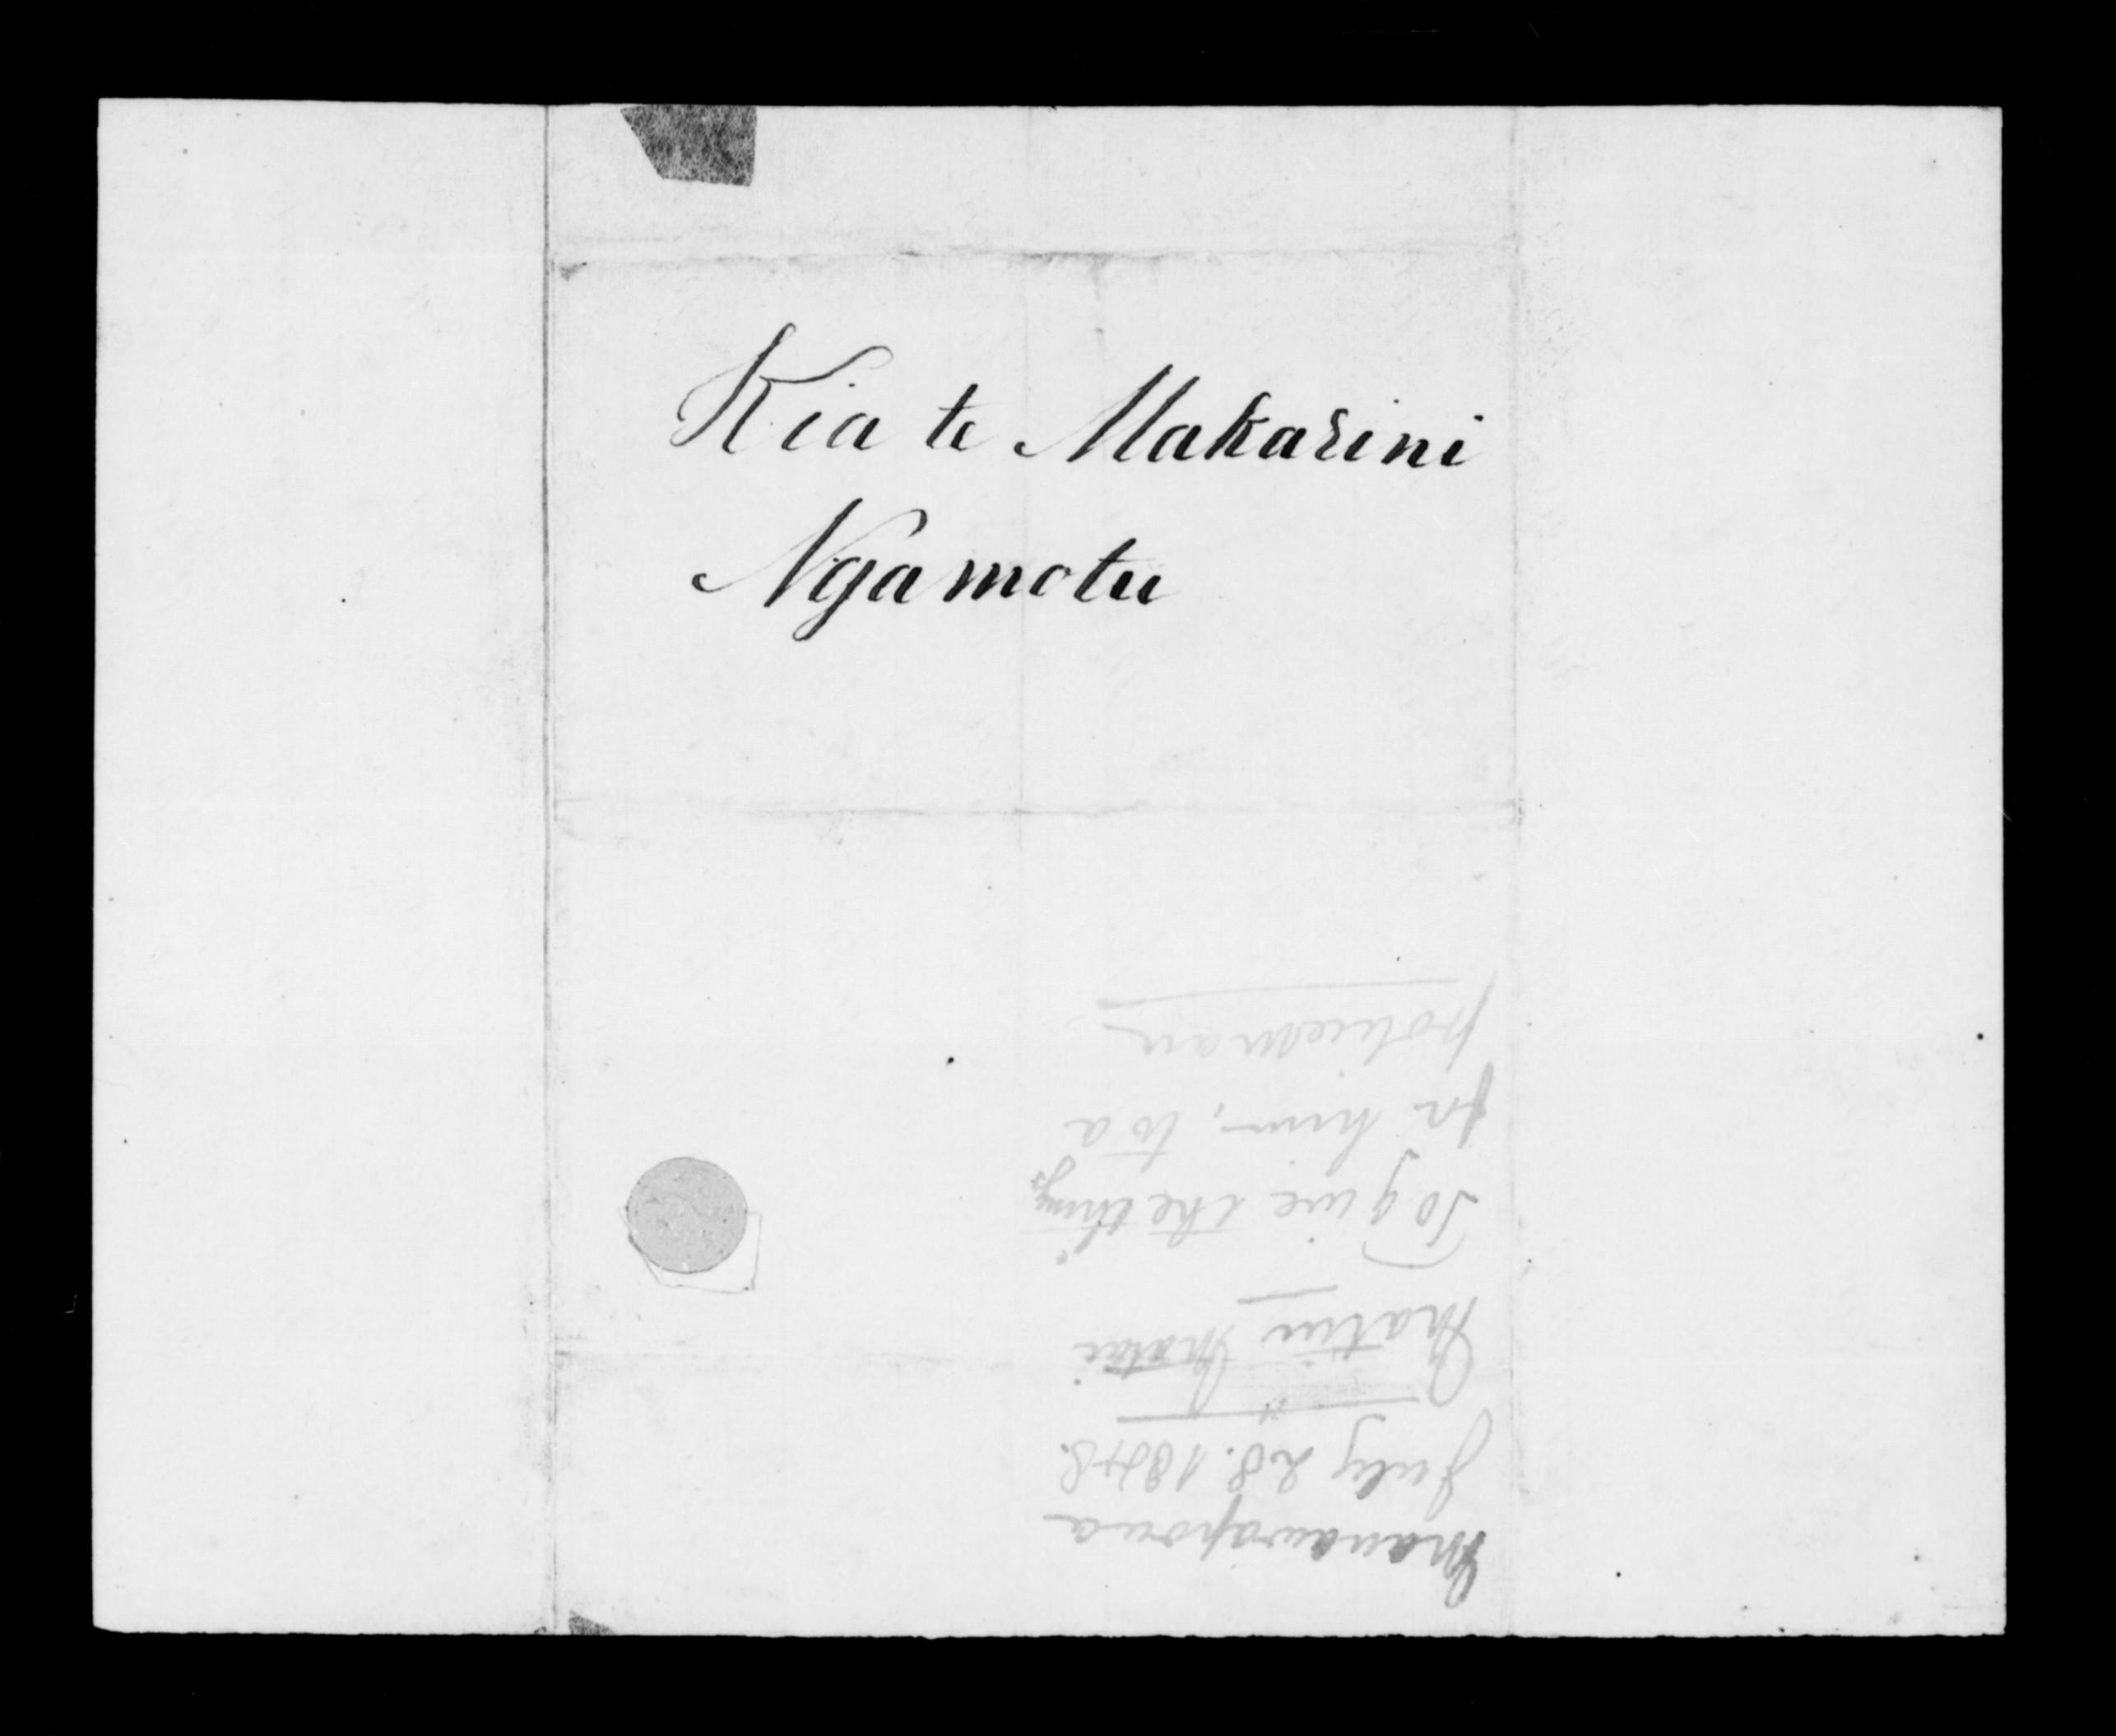 Kia te Makarini
Ngamotu
Manawapoua
July 28. 1848.
Matiu
To give the things
for him, to a
policeman